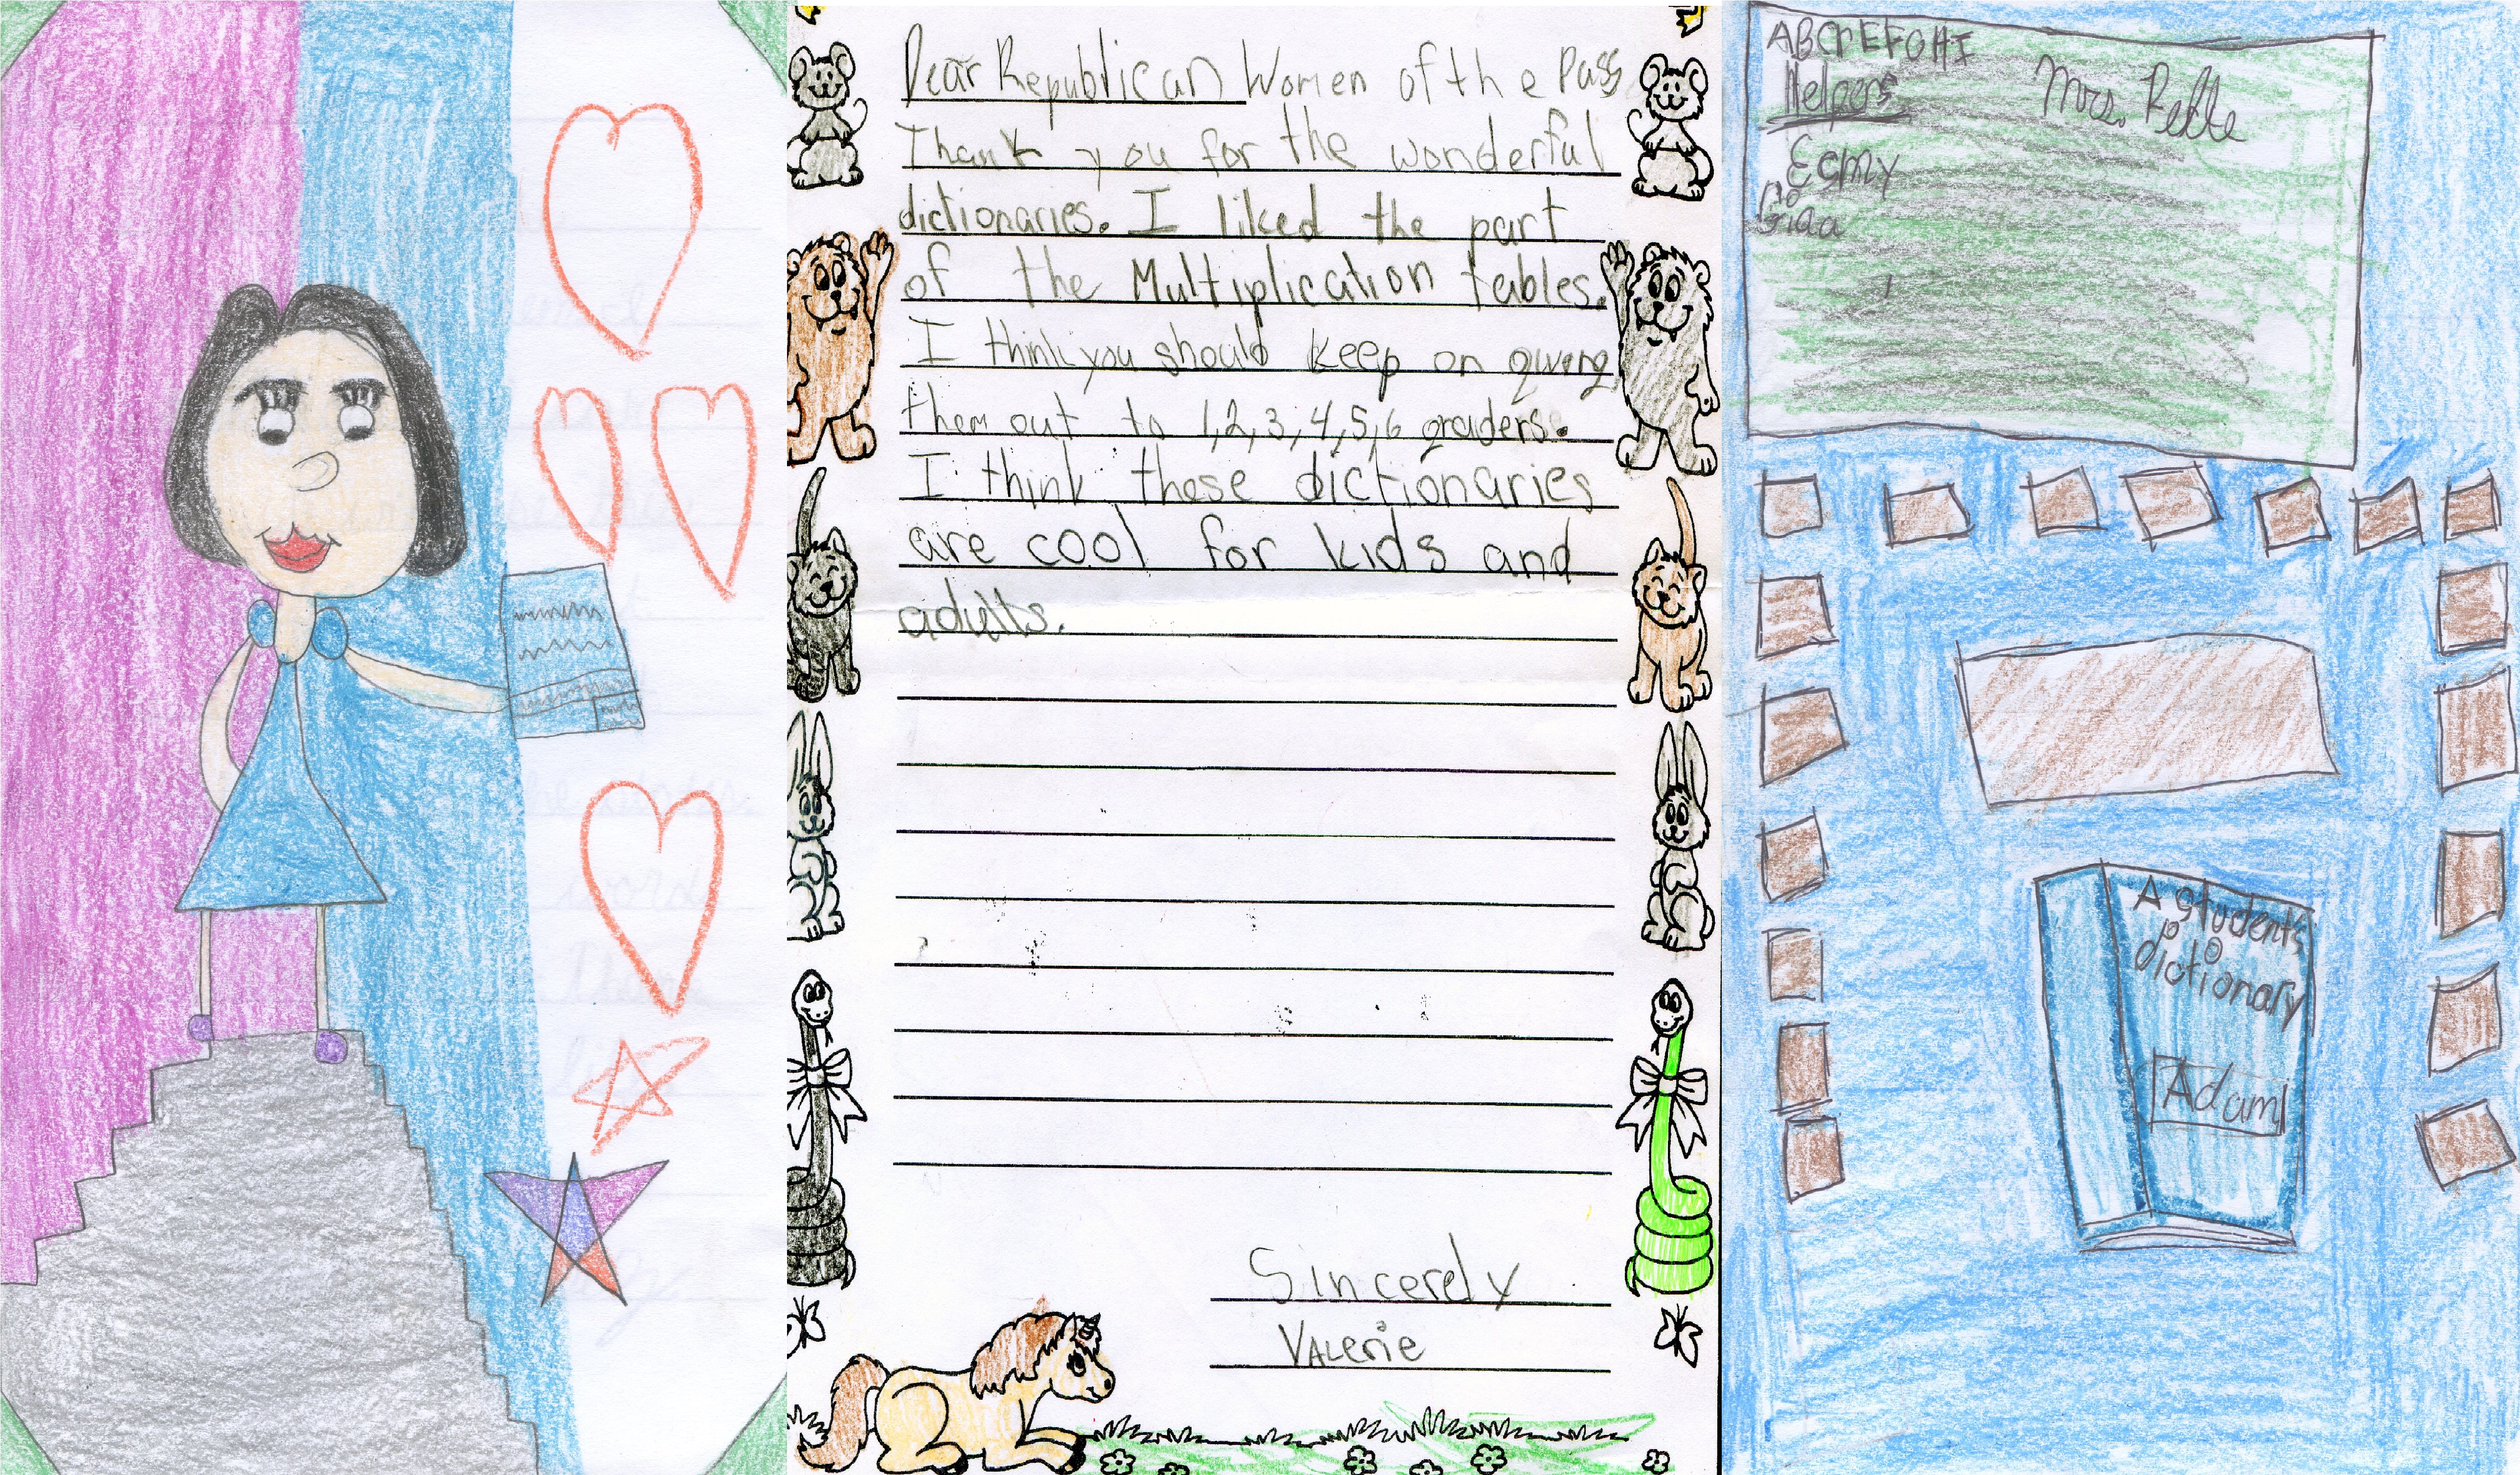 Dear Republican Women of the Pass
Thank you for the wonderful
dictionaries. I liked the part
of the Multiplication tables.
I think you should keep on giving
them out to 1,2,3,4,5,6 graders.
I think these dictionaries
are cool for kids and
adults.
Sincerely
Valerie
ABCDEFGHI
Helpers
Mrs.
A student's
dictionary
Adam